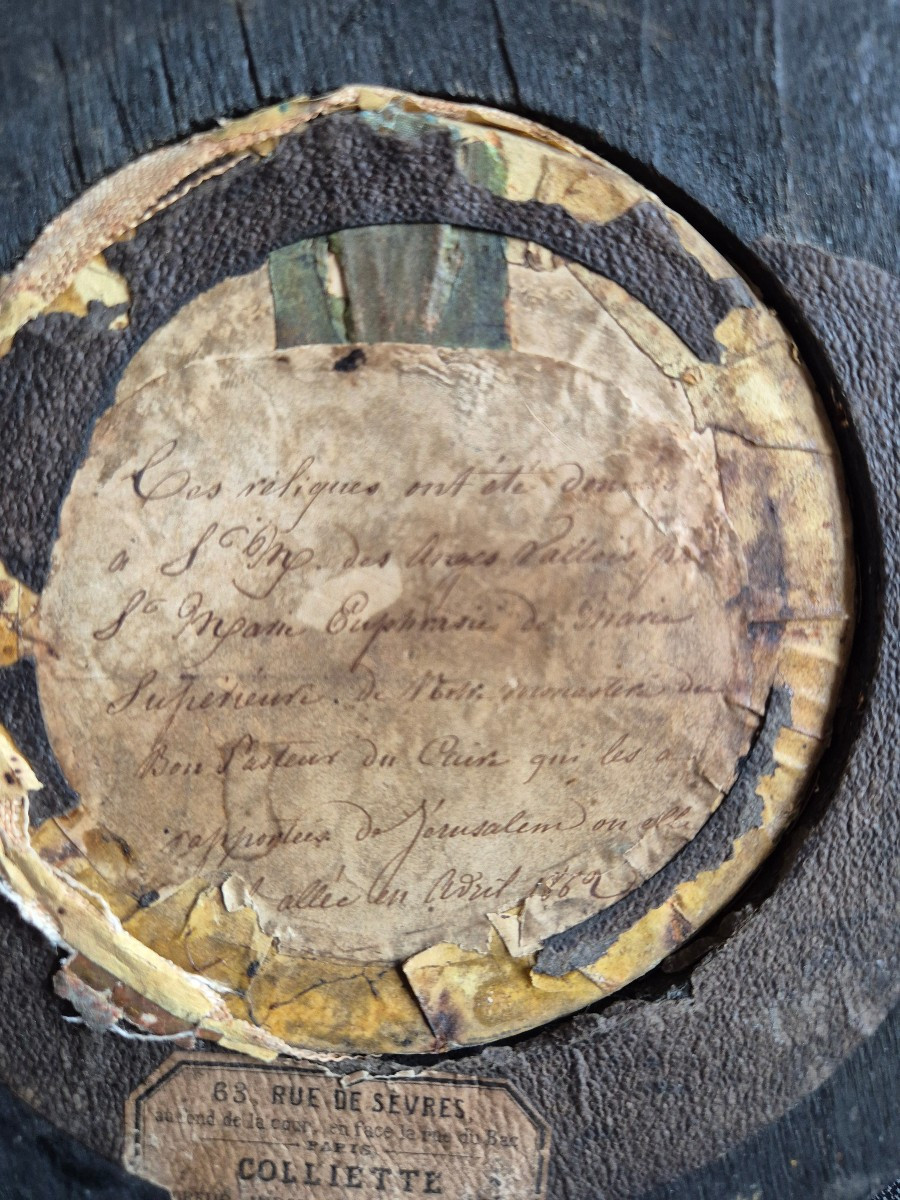 Ces réliques ont été
à Sr M. des Vallois
Sr Marie Euphrasie de Marie
Supérieure. de Notre monastère du
Bon Pasteur du Caire qui les a
rapportées de Jérusalem ou elle
allée en Avril 1862
63, RUE DE SÈVRES,
au fond de la cour, en face la rue du Bac
PARIS
COLLIETTE